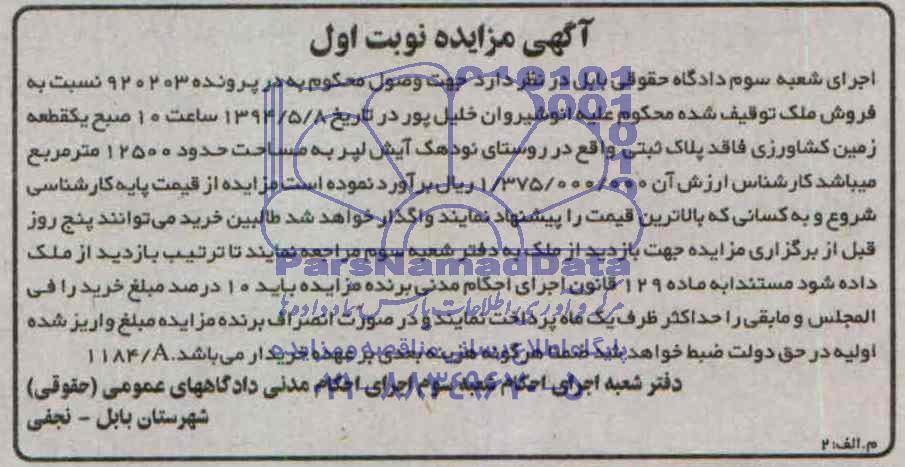 آگهی مزایده نوبت اول
اجرای شعبه سوم دادگاه حقوقی بابل در نظر دارد جهت وصول محکوم به در پرونده ۹۲۰۲۰۳ نسبت به
فروش ملک توقیف شده محکوم علیه انوشیروان خلیل پور در تاریخ ۱۳۹۴/۵/۸ ساعت ۱۰ صبح یکقطعه
زمین کشاورزی فاقد پلاک ثبتی واقع در روستای نودهک آیش لپر به مساحت حدود ۱۲۵۰۰ مترمربع
میباشد کارشناس ارزش آن ۱/۳۷۵/۰۰۰/۰۰۰ ریال برآورد نموده است مزایده از قیمت پایه کارشناسی
شروع و به کسانی که بالاترین قیمت را پیشنهاد نمایند واگذار خواهد شد طالبین خرید می‌توانند پنج روز
قبل از برگزاری مزایده جهت بازدید از ملک به دفتر شعبه سوم مراجعه نمایند تا ترتیب بازدید از ملک
داده شود مستندابه ماده ۱۲۹ قانون اجرای احکام مدنی برنده مزایده باید ۱۰ درصد مبلغ خرید را فی
المجلس و مابقی را حداکثر ظرف یک ماه پرداخت نمایند و در صورت انصراف برنده مزایده مبلغ واریز شده
اولیه در حق دولت ضبط خواهد شد ضمنا هرگونه هزینه بعدی بر عهده خریدار می‌باشد. ۱۱۸۴/A
دفتر شعبه اجرای احکام شعبه سوم اجرای احکام مدنی دادگاههای عمومی (حقوقی)
شهرستان بابل - نجفی
م.الف: ۲
ParsNamadData